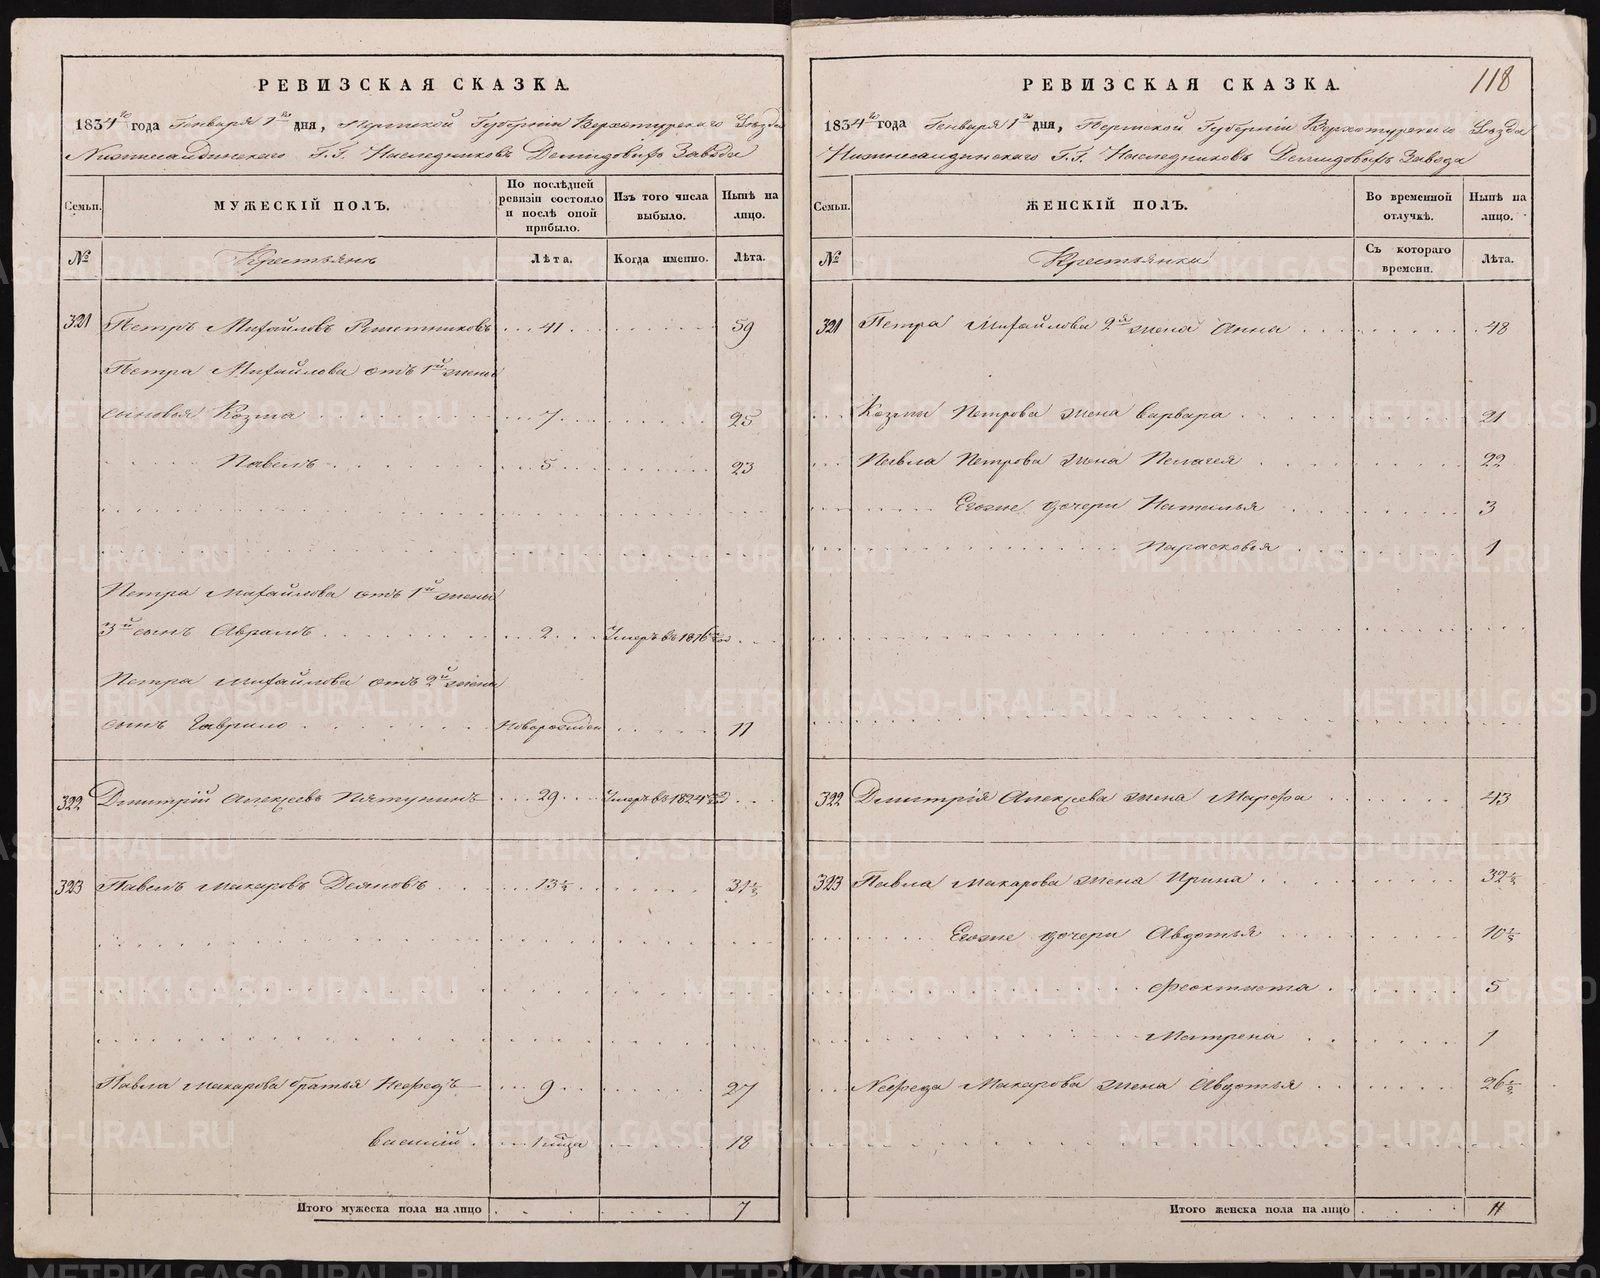 РЕВИЗСКАЯ СКАЗКА.
1834го года Генваря 1го дня, Пермской Губернiи Верхотурского Уѣзда
Нижнесалдинского Г.Г. Наследниковъ Демидовыхъ Завода
Семьи.
МУЖЕСКIЙ ПОЛЪ.
По послѣдней ревизiи состояло и послѣ оной прибыло.
Изъ того числа выбыло.
Нынѣ на лицо.
№
Крестьянъ
Лѣта.
Когда именно.
Лѣта.
321 Петръ Михайловъ Решетниковъ 41 59
Петра Михайлова отъ 1й жены
сыновья Козма 7 25
Павелъ 5 23
Петра Михайлова отъ 1й жены
3й сынъ Аврамъ 2 Умеръ въ 1816 году
Петра Михайлова отъ 2й жены
сынъ Гаврило Новорожден 11
322 Дмитрiй Алексеевъ Пятунинъ 29 Умеръ въ 1824 году
323 Павелъ Макаровъ Деяновъ 13½ 31½
Павла Макарова братья Нефедъ 9 27
Василiй 1 мца 18
Итого мужеска пола на лицо 7
118
РЕВИЗСКАЯ СКАЗКА.
1834го года Генваря 1го дня, Пермской Губернiи Верхотурского Уѣзда
Нижнесалдинского Г.Г. Наследниковъ Демидовыхъ Завода
Семьи.
ЖЕНСКIЙ ПОЛЪ.
Во временной отлучкѣ.
Нынѣ на лицо.
№
Крестьянки
Съ котораго времени.
Лѣта.
321 Петра Михайлова 2я жена Анна 48
Козмы Петрова жена Варвара 21
Павла Петрова жена Пелагея 22
Егоже дочери Наталья 3
Парасковья 1
322 Дмитрiя Алексеева жена Марфа 43
323 Павла Макарова жена Ирина 32½
Егоже дочери Авдотья 10½
Феоктиста 5
Матрена 1
Нефеда Макарова жена Авдотья 26½
Итого женска пола на лицо 11
METRIKI.GASO-URAL.RU